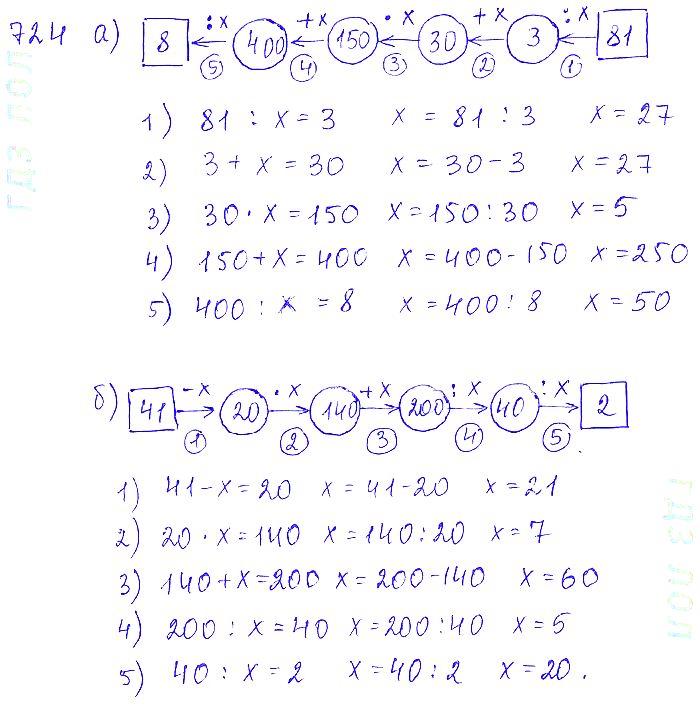 724 а) 8 :x 400 +x 150 · x 30 +x 3 :x 81
5 4 3 2 1
1) 81 : x = 3 x = 81 : 3 x = 27
2) 3 + x = 30 x = 30 - 3 x = 27
3) 30 · x = 150 x = 150 : 30 x = 5
4) 150 + x = 400 x = 400 - 150 x = 250
5) 400 : x = 8 x = 400 : 8 x = 50
б) 41 -x 20 · x 140 +x 200 : x 40 : x 2
1 2 3 4 5.
1) 41 - x = 20 x = 41 - 20 x = 21
2) 20 · x = 140 x = 140 : 20 x = 7
3) 140 + x = 200 x = 200 - 140 x = 60
4) 200 : x = 40 x = 200 : 40 x = 5
5) 40 : x = 2 x = 40 : 2 x = 20.
ГДЗ ЛОЛ
ГДЗ ЛОЛ